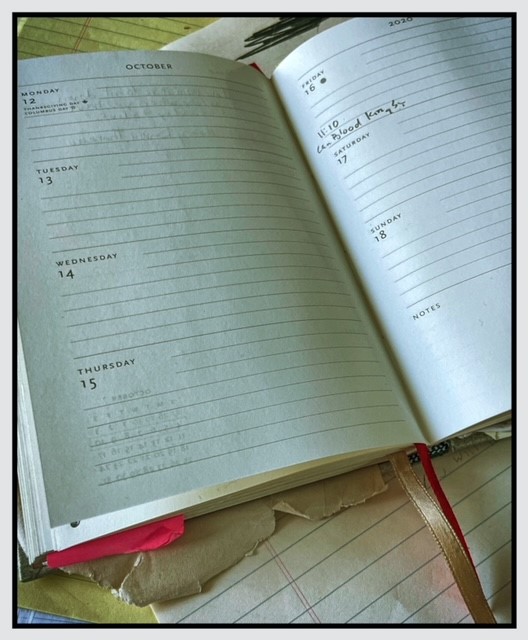 OCTOBER
MONDAY
12
THANKSGIVING DAY
COLUMBUS DAY
TUESDAY
13
WEDNESDAY
14
THURSDAY
15
2020
FRIDAY
16
11:10
Blood
SATURDAY
17
SUNDAY
18
NOTES